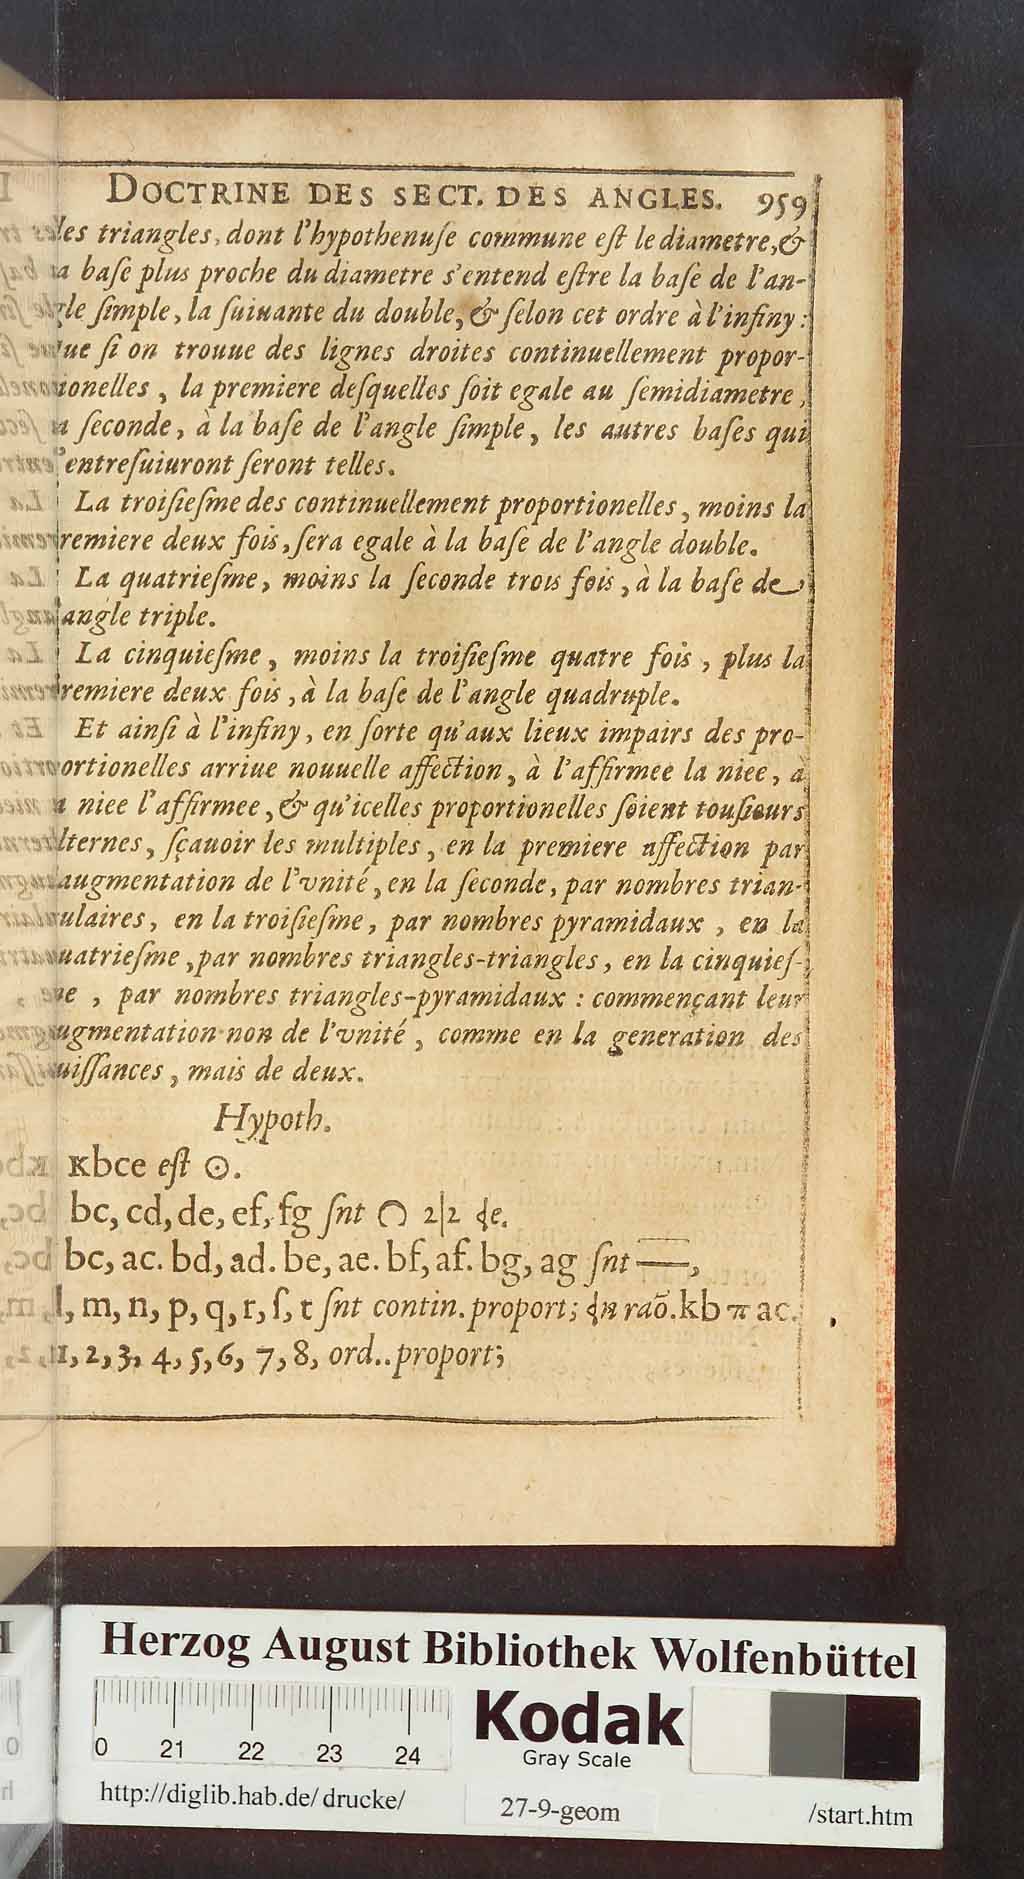 DOCTRINE DES SECT. DES ANGLES. 959
les triangles, dont l'hypothenuſe commune eſt le diametre, &
a baſe plus proche du diametre s'entend eſtre la baſe de l'an-
gle ſimple, la ſuiuante du double, & ſelon cet ordre à l'infiny:
ue ſi on trouue des lignes droites continuellement propor-
ionelles, la premiere deſquelles ſoit egale au ſemidiametre,
a ſeconde, à la baſe de l'angle ſimple, les autres baſes qui
'entreſuiuront ſeront telles.
La troiſieſme des continuellement proportionelles, moins la
remiere deux fois, ſera egale à la baſe de l'angle double.
La quatrieſme, moins la ſeconde trois fois, à la baſe de
angle triple.
La cinquieſme, moins la troiſieſme quatre fois, plus la
remiere deux fois, à la baſe de l'angle quadruple.
Et ainſi à l'infiny, en ſorte qu'aux lieux impairs des pro-
ortionelles arriue nouuelle affection, à l'affirmee la niee, à
a niee l'affirmee, & qu'icelles proportionelles ſoient touſiours
lternes, ſçauoir les multiples, en la premiere affection par
augmentation de l'vnité, en la ſeconde, par nombres trian-
ulaires, en la troiſieſme, par nombres pyramidaux, en la
uatrieſme, par nombres triangles-triangles, en la cinquieſ-
me, par nombres triangles-pyramidaux: commençant leur
ugmentation non de l'vnité, comme en la generation des
uiſſances, mais de deux.
Hypoth.
Kbce eſt ⊙.
bc, cd, de, ef, fg ſnt ∩ 2|2 ∢e.
bc, ac. bd, ad. be, ae. bf, af. bg, ag ſnt —,
l, m, n, p, q, r, ſ, t ſnt contin. proport; ∢n raõ. kb π ac.
1, 2, 3, 4, 5, 6, 7, 8, ord.. proport;
Herzog August Bibliothek Wolfenbüttel
Kodak
Gray Scale
0 21 22 23 24
http://diglib.hab.de/drucke/ 27-9-geom /start.htm